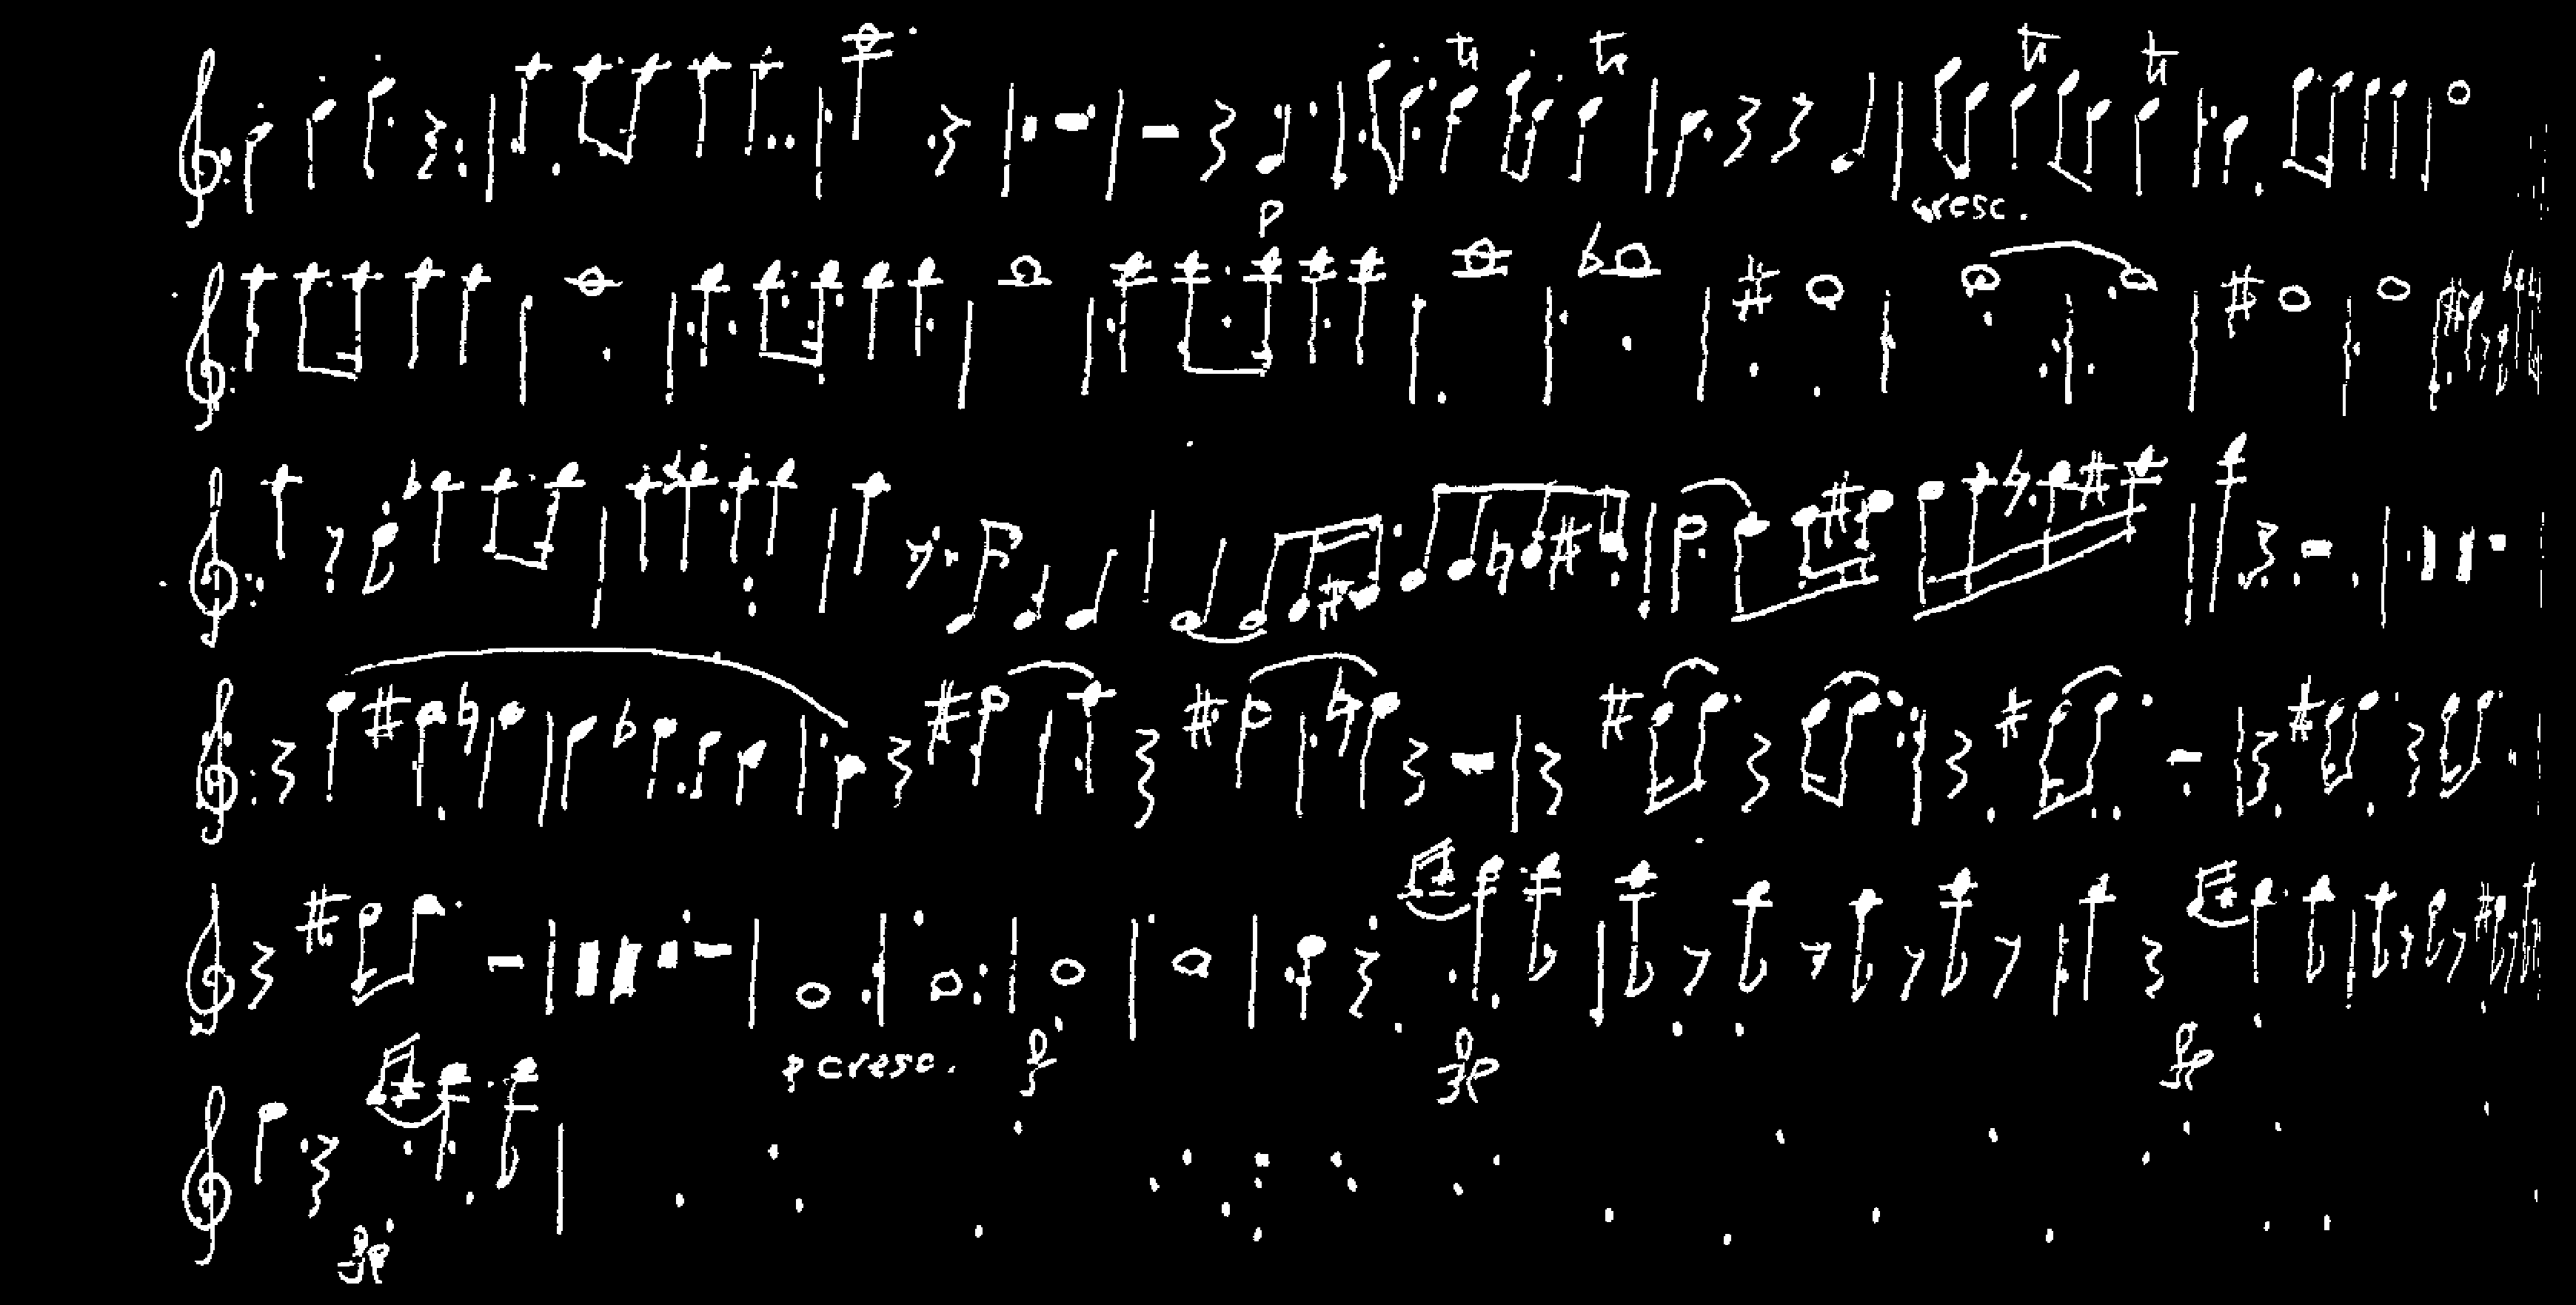 tr tr tr tr
p cresc.
p cresc. f fp fp
fp